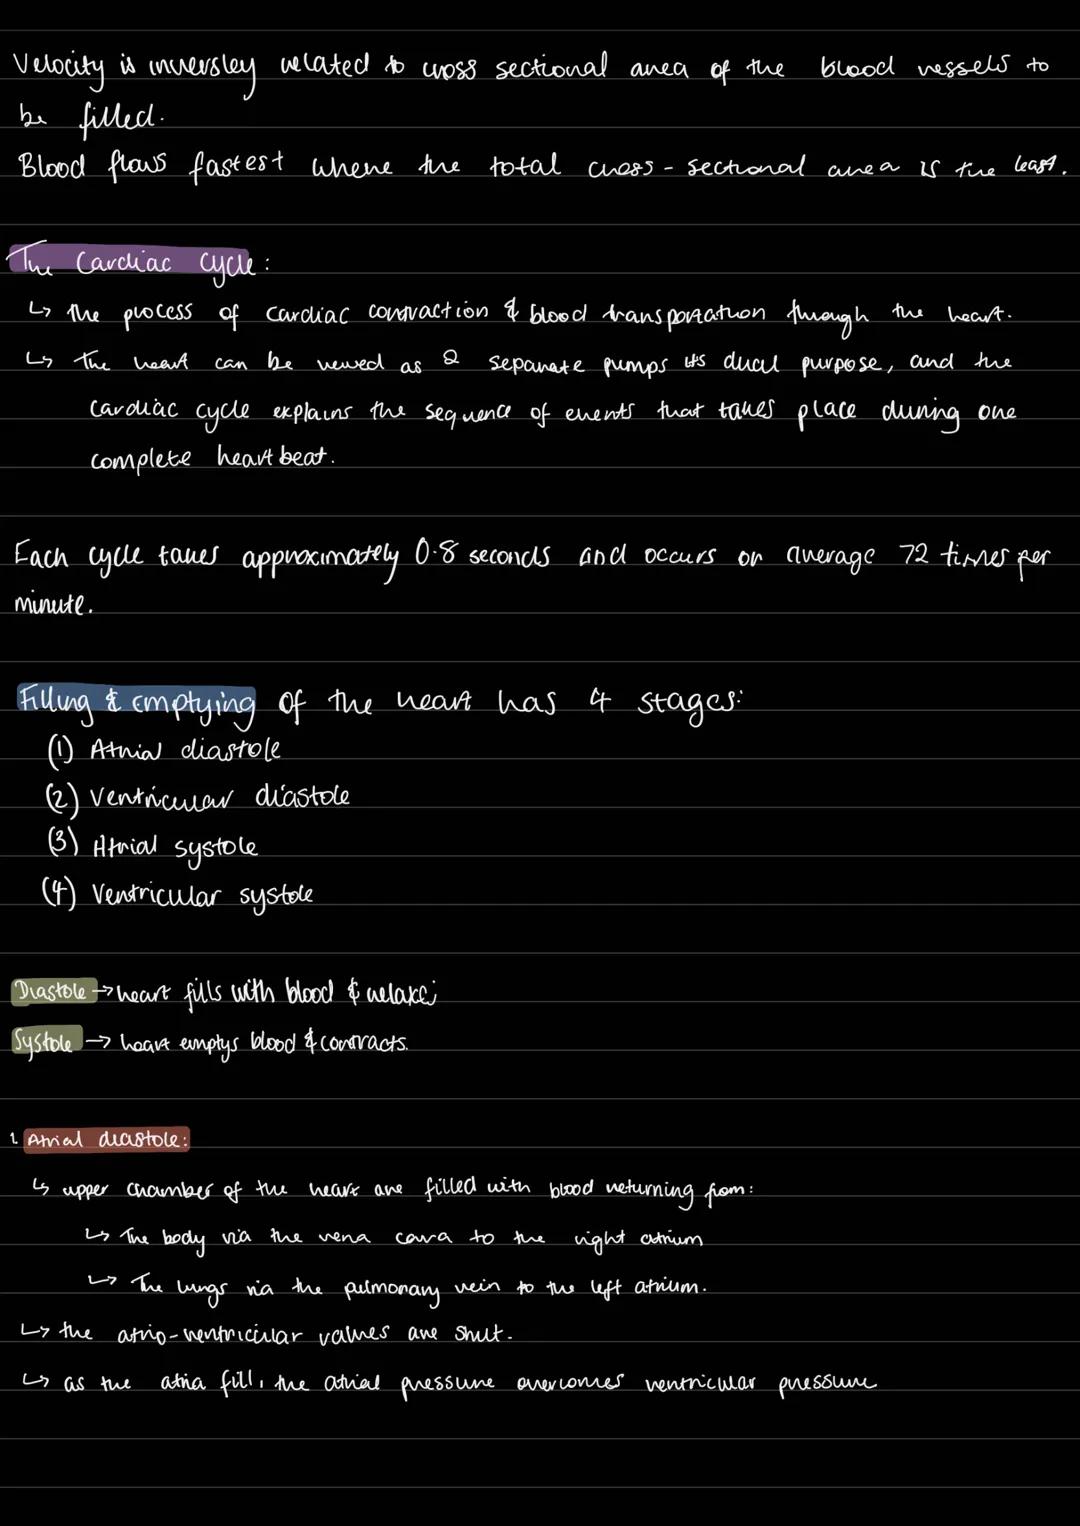 Velocity is inversley related to cross sectional area of the blood vessels to
be filled.
Blood flows fastest where the total cross-sectional area is the least.
The Cardiac Cycle:
↳ the process of cardiac contraction & blood transportation through the heart.
↳ The heart can be viewed as 2 separate pumps its dual purpose, and the
cardiac cycle explains the sequence of events that takes place during one
complete heartbeat.
Each cycle takes approximately 0.8 seconds and occurs on average 72 times per
minute.
Filling & Emptying of the heart has 4 stages:
(1) Atrial diastole
(2) Ventricular diastole
(3) Atrial systole
(4) Ventricular systole
Diastole → heart fills with blood &
Systole → heart emptys blood & contracts.
1. Atrial diastole:
↳ upper chamber of the heart are filled with blood returning from:
↳ The body via the vena cava to the right atrium
↳ The lungs via the pulmonary vein to the left atrium.
↳ the atrio-ventricular valves are shut.
↳ as the atria fill, the atrial pressure overcomes ventricular pressure